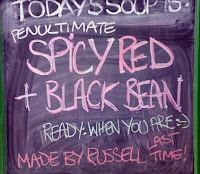 TODAYS SOUP IS:
PENULTIMATE
SPICY RED
+ BLACK BEAN
READY: WHEN YOU ARE :-)
MADE BY RUSSELL LAST TIME!